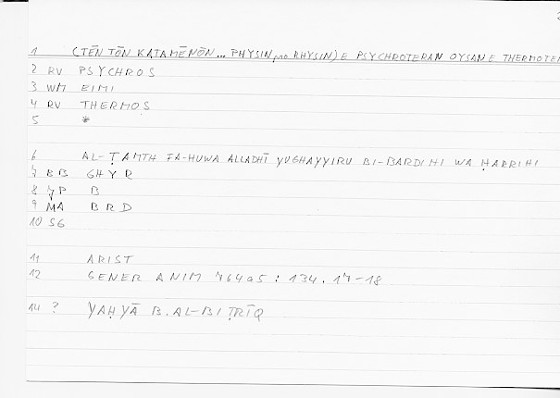 1 (TĒN TŌN KATAMĒNŌN... PHYSIN pro RHYSIN) E PSYCHROTERAN OYSAN E THERMOTE
2 RV PSYCHROS
3 WM EIMI
4 RV THERMOS
5 *
6 AL-ṬAMTH FA-HUWA ALLADHĪ YUGHAYYIRU BI-BARDIHI WA ḤARRIHI
7 BB GHYR
8 7P B
9 MA BRD
10 SG
11 ARIST
12 GENER ANIM 764a5 : 134.17-18
14 ? YAḤYĀ B. AL-BIṬRĪQ